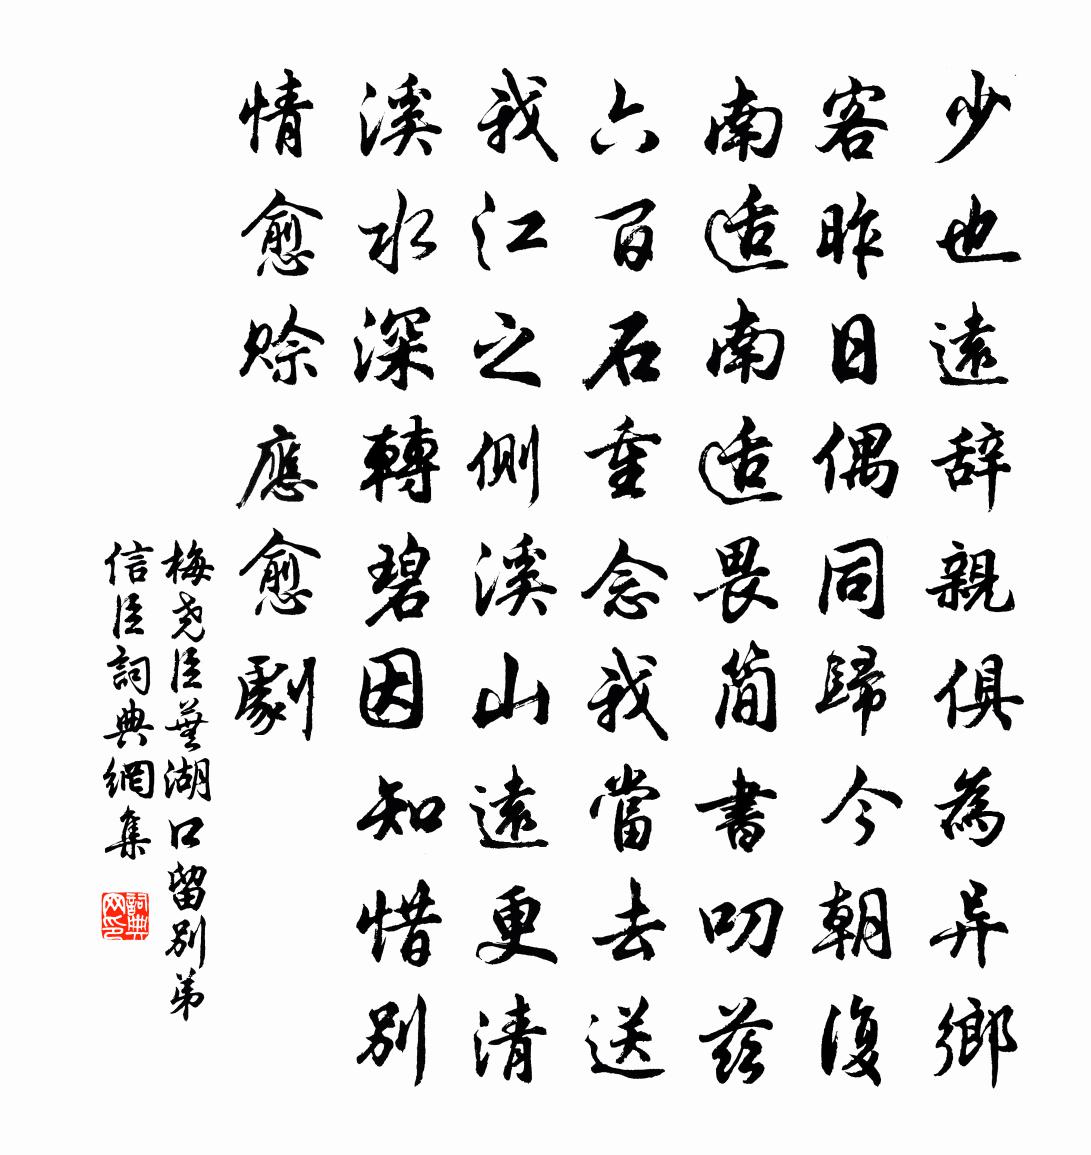 少也遠辞親俱為异鄉
客昨日偶同歸今朝復
南适南适畏簡書叨茲
六百石重念我當去送
我江之側溪山遠更清
溪水深轉碧因知惜别
情愈賒應愈劇
梅堯臣蕪湖口留别弟
信臣詞典網集
詞典网印